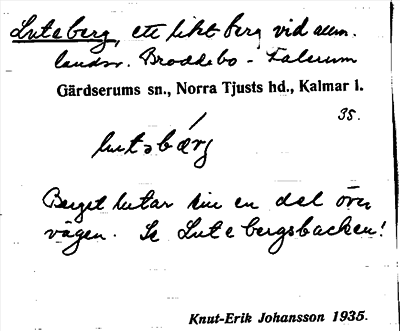 Luteberg, ett litet berg vid allm.
landsv. Broddebo - Falerum
Gärdserums sn., Norra Tjusts hd., Kalmar l.
35.
lutəbærg
Berget lutar sin en del över
vägen. Se Lutebergsbacken!
Knut-Erik Johansson 1935.